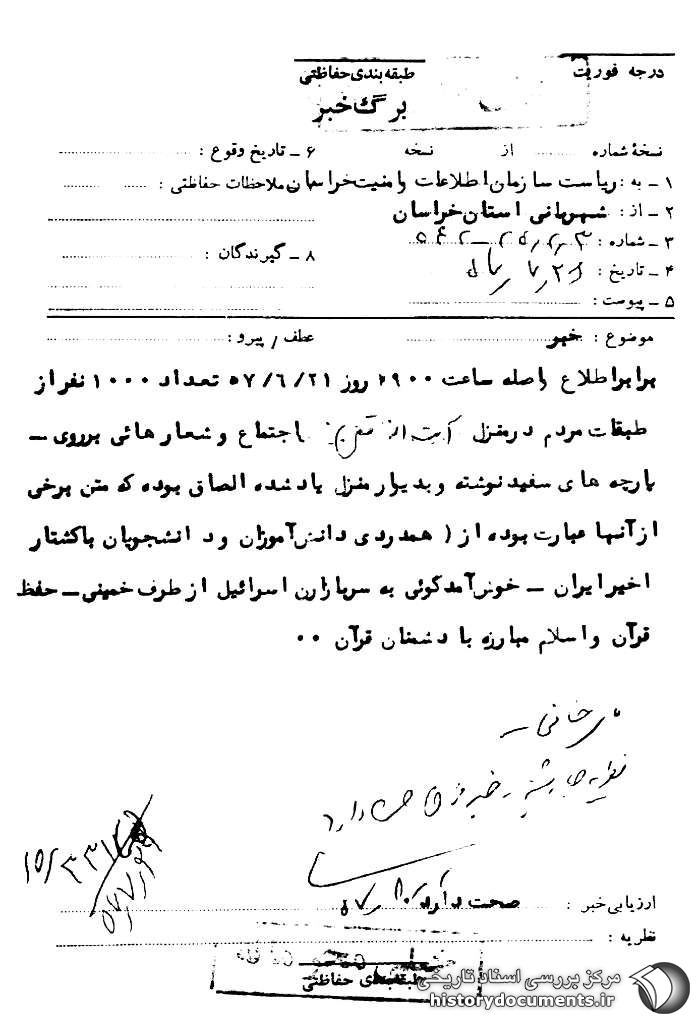 درجه فوریت
طبقه‌بندی حفاظتی
برگ خبر
نسخهٔ شماره از نسخه
۶ ـ تاریخ وقوع :
۱ ـ به : ریاست سازمان اطلاعات و امنیت خراسان
ملاحظات حفاظتی :
۲ ـ از : شهربانی استان خراسان
۳ ـ شماره :
۴ ـ تاریخ :
۵ ـ پیوست :
۸ ـ گیرندگان :
موضوع : خبر
عطف / پیرو :
برابر اطلاع واصله ساعت ۱۹۰۰ روز ۵۷/۶/۲۱ تعداد ۱۰۰۰ نفر از
طبقات مردم در منزل اجتماع و شعارهائی بر روی ـ
پارچه های سفید نوشته و بدیوار منزل یاد شده الصاق بوده که متن برخی
از آنها عبارت بوده از ( همدردی دانش‌آموزان و دانشجویان باکشتار
اخیر ایران ـ خوش‌آمدگوئی به سربازارن اسرائیل از طرف خمینی ـ حفظ
قرآن و اسلام مبارزه با دشمنان قرآن ۰۰
ارزیابی خبر : صحت دارد
نظریه :
طبقه‌بندی حفاظتی
مرکز بررسی اسناد تاریخی
historydocuments.ir